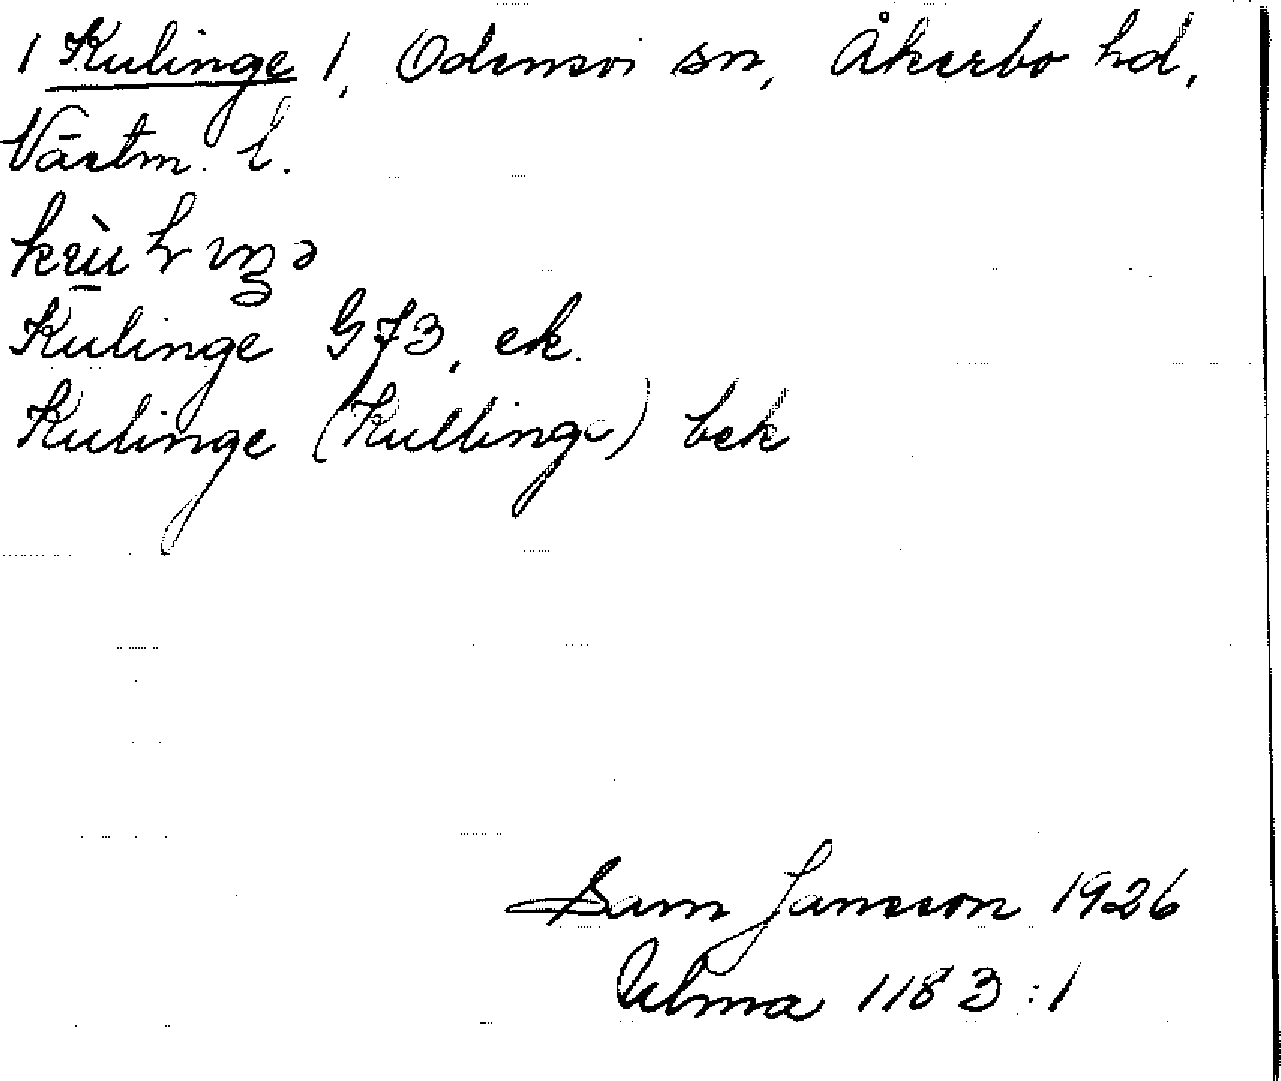 / Kulinge /, Odensvi sn, Åkerbo hd,
Västm. l.
Kulinge G73, ek.
Kulinge (Kullinge) bek
Sam Jansson 1926
Ulma 1183:1